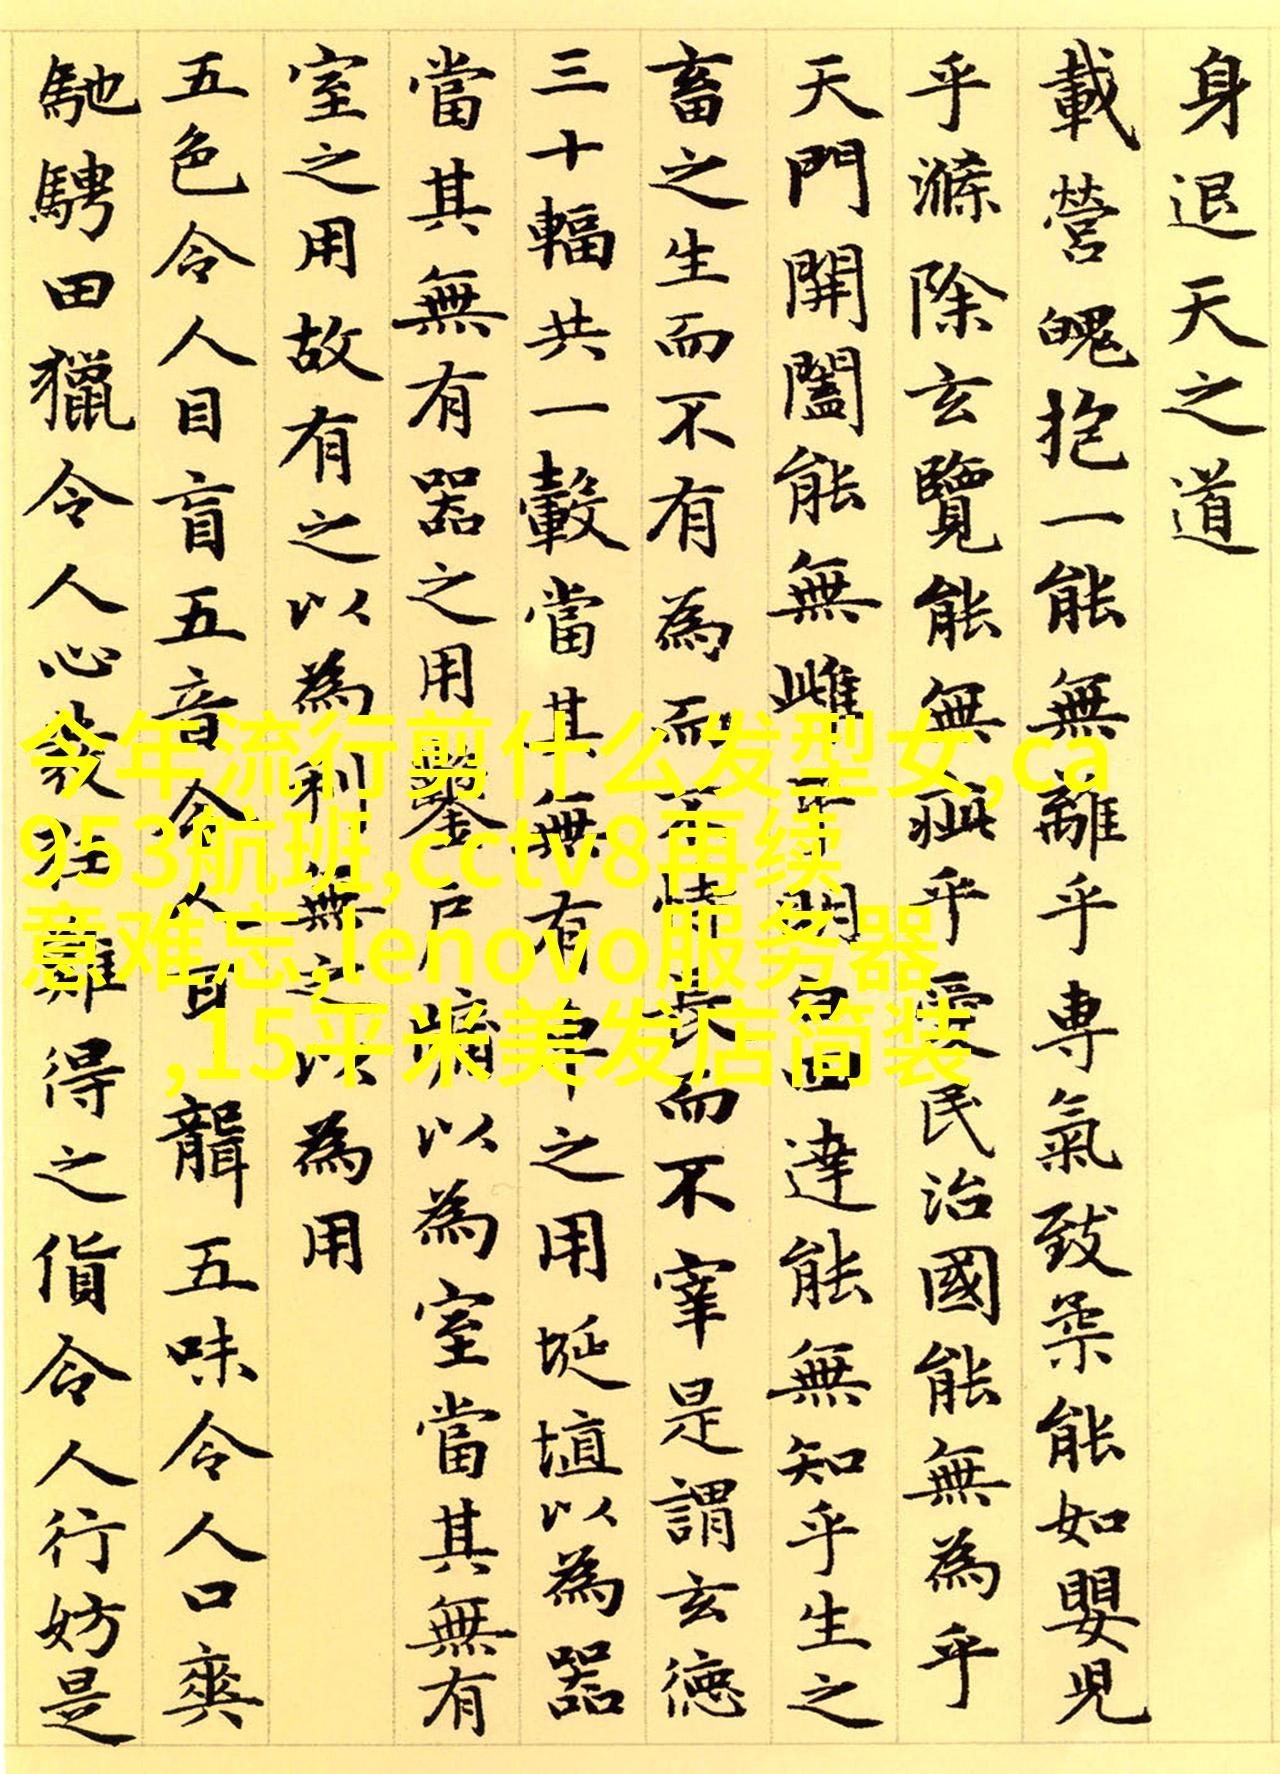 身退天之道
載營魄抱一能無離乎專氣致柔能如嬰兒
乎滌除玄覽能無疵乎愛民治國能無為乎
天門開闔能無雌乎明白四達能無知乎生之
畜之生而不有為而不恃長而不宰是謂玄德
三十輻共一轂當其無有車之用埏埴以為器
當其無有器之用鑿戶牖以為室當其無有
室之用故有之以為利無之以為用
五色令人目盲五音令人耳聾五味令人口爽
馳騁田獵令人心發狂難得之貨令人行妨是
今年流行剪什么发型女,ca
953航班,cctv8再续
意难忘,lenovo服务器
,15平米美发店简装